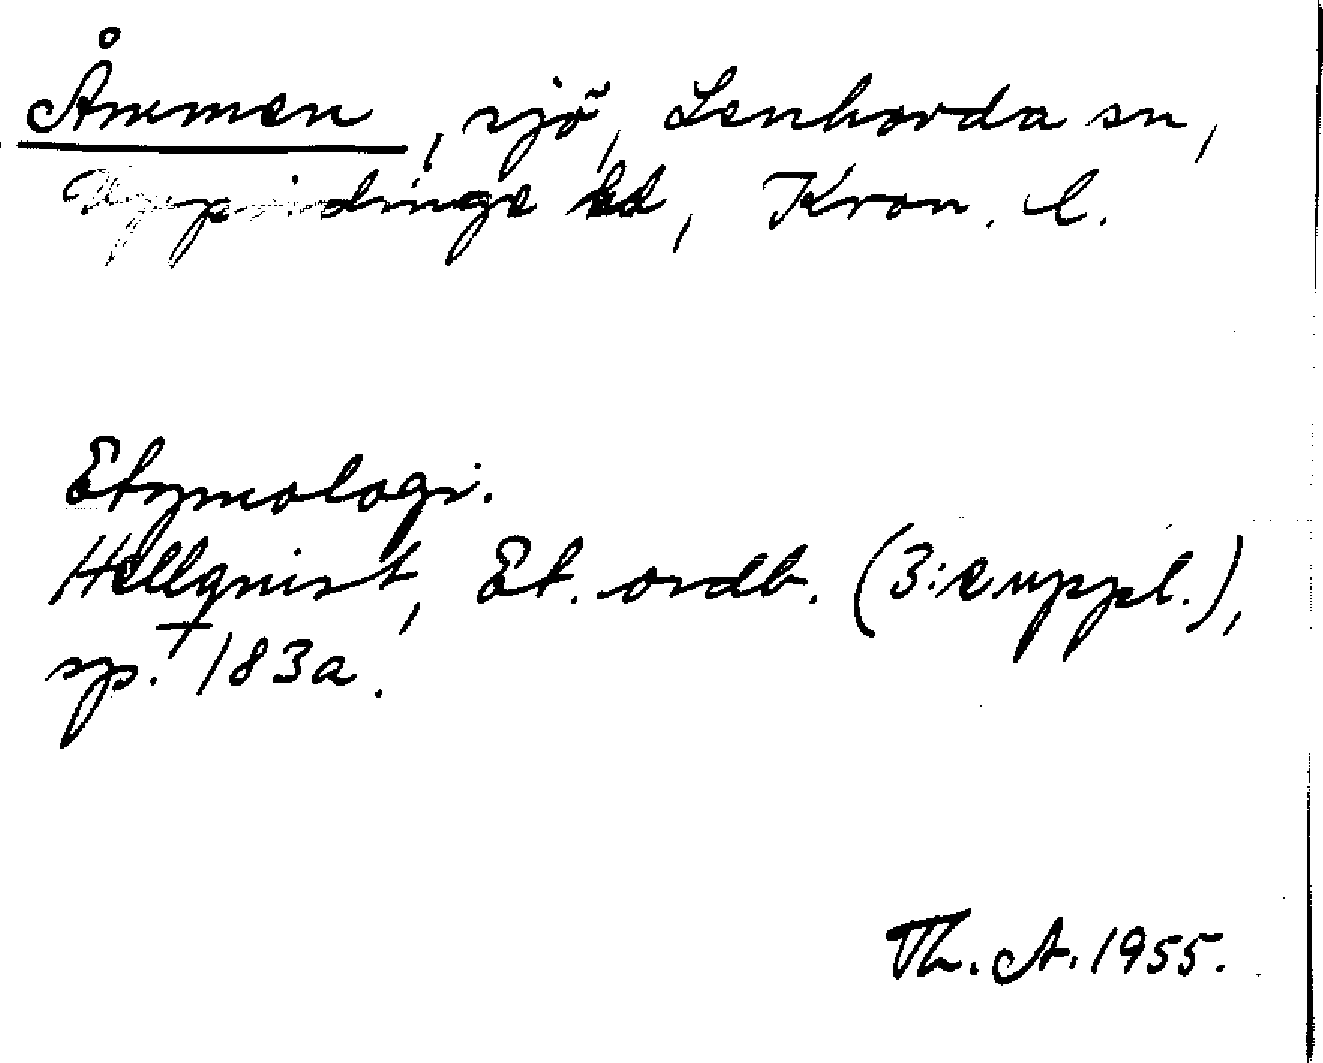 Åmmen, sjö, Lenhovda sn,
Uppvidinge hd, Kron. l.
Etymologi.
Hellquist, Et. ordb. (3:e uppl.),
sp. 183a.
Th. A. 1955.